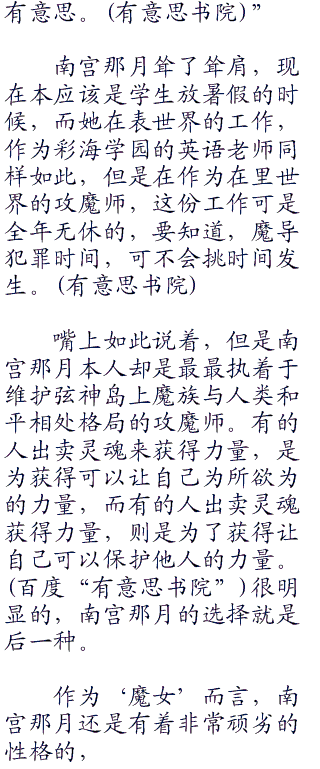 有意思。(有意思书院)”
南宫那月耸了耸肩，现
在本应该是学生放暑假的时
候，而她在表世界的工作，
作为彩海学园的英语老师同
样如此，但是在作为在里世
界的攻魔师，这份工作可是
全年无休的，要知道，魔导
犯罪时间，可不会挑时间发
生。(有意思书院)
嘴上如此说着，但是南
宫那月本人却是最最执着于
维护弦神岛上魔族与人类和
平相处格局的攻魔师。有的
人出卖灵魂来获得力量，是
为获得可以让自己为所欲为
的力量，而有的人出卖灵魂
获得力量，则是为了获得让
自己可以保护他人的力量。
(百度“有意思书院”)很明
显的，南宫那月的选择就是
后一种。
作为‘魔女’而言，南
宫那月还是有着非常顽劣的
性格的，